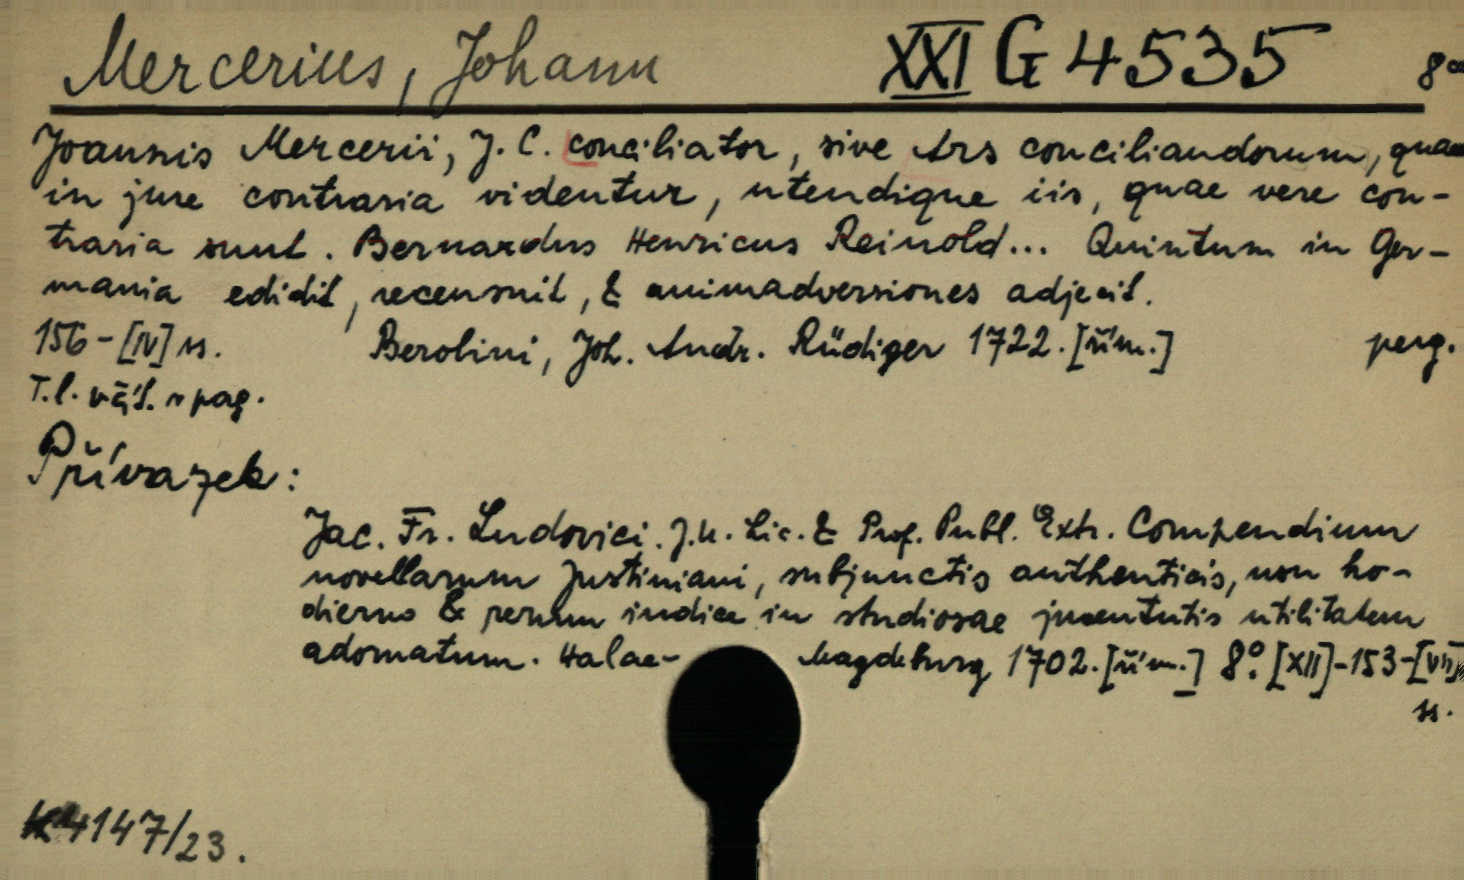 Mercerius, Johann XXI G 4535 8°
Joannis Mercerii, J. C. conciliator, sive Ars conciliandorum, quae
in jure contraria videntur, utendique iis, quae vere con-
traria sunt. Bernardus Henricus Reinold... Quintum in Ger-
mania edidit, recensuit, & animadversiones adjecit.
156-[IV] ss. Berolini, Joh. Andr. Rüdiger 1722.[řím.] perg.
T.l. váž. v pag.
Přívazek:
Jac. Fr. Ludovici. J.U. Lic. & Prof. Publ. Extr. Compendium
novellarum Justiniani, subjunctis authenticis, non ho-
dierno & rerum indice in studiosae juventutis utilitatem
adornatum. Halae- Magdeburg 1702.[řím.] 8° [XII]-153-[VII]
ss.
4147/23.